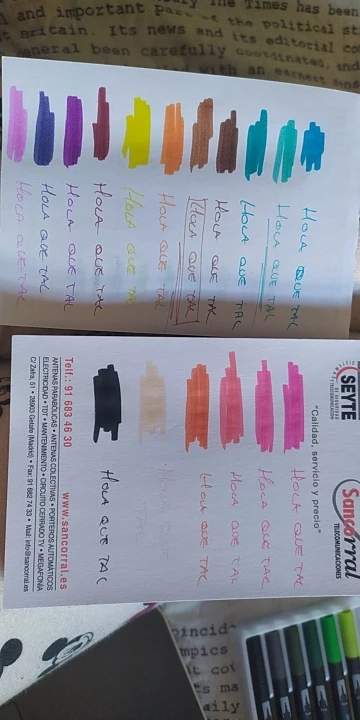 The Times has been
and important part of the political st
t Britain. Its news and its editorial co
general been carefully coordinated,
with an earnest sens
HOLA QUE TAL
HOLA QUE TAL
HOLA QUE TAL
HOLA QUE TAL
HOLA QUE TAL
HOLA QUE TAL
HOLA QUE TAL
HOLA QUE TAL
HOLA QUE TAL
HOLA QUE TAL
HOLA QUE TAL
SEYTE
Sancorral
TELECOMUNICACIONES
"Calidad, servicio y precio"
HOLA QUE TAL
HOLA QUE TAL
HOLA QUE TAL
HOLA QUE TAL
HOLA QUE TAL
Telf.: 91 683 46 30 www.sancorral.es
ANTENAS PARABÓLICAS • ANTENAS COLECTIVAS • PORTEROS AUTOMÁTICOS
ELECTRICIDAD • TDT • MANTENIMIENTO • CIRCUITO CERRADO TV • MEGAFONÍA
C/ Zafra, 51 • 28903 Getafe (Madrid) • Fax: 91 682 74 33 • Mail: info@sancorral.es